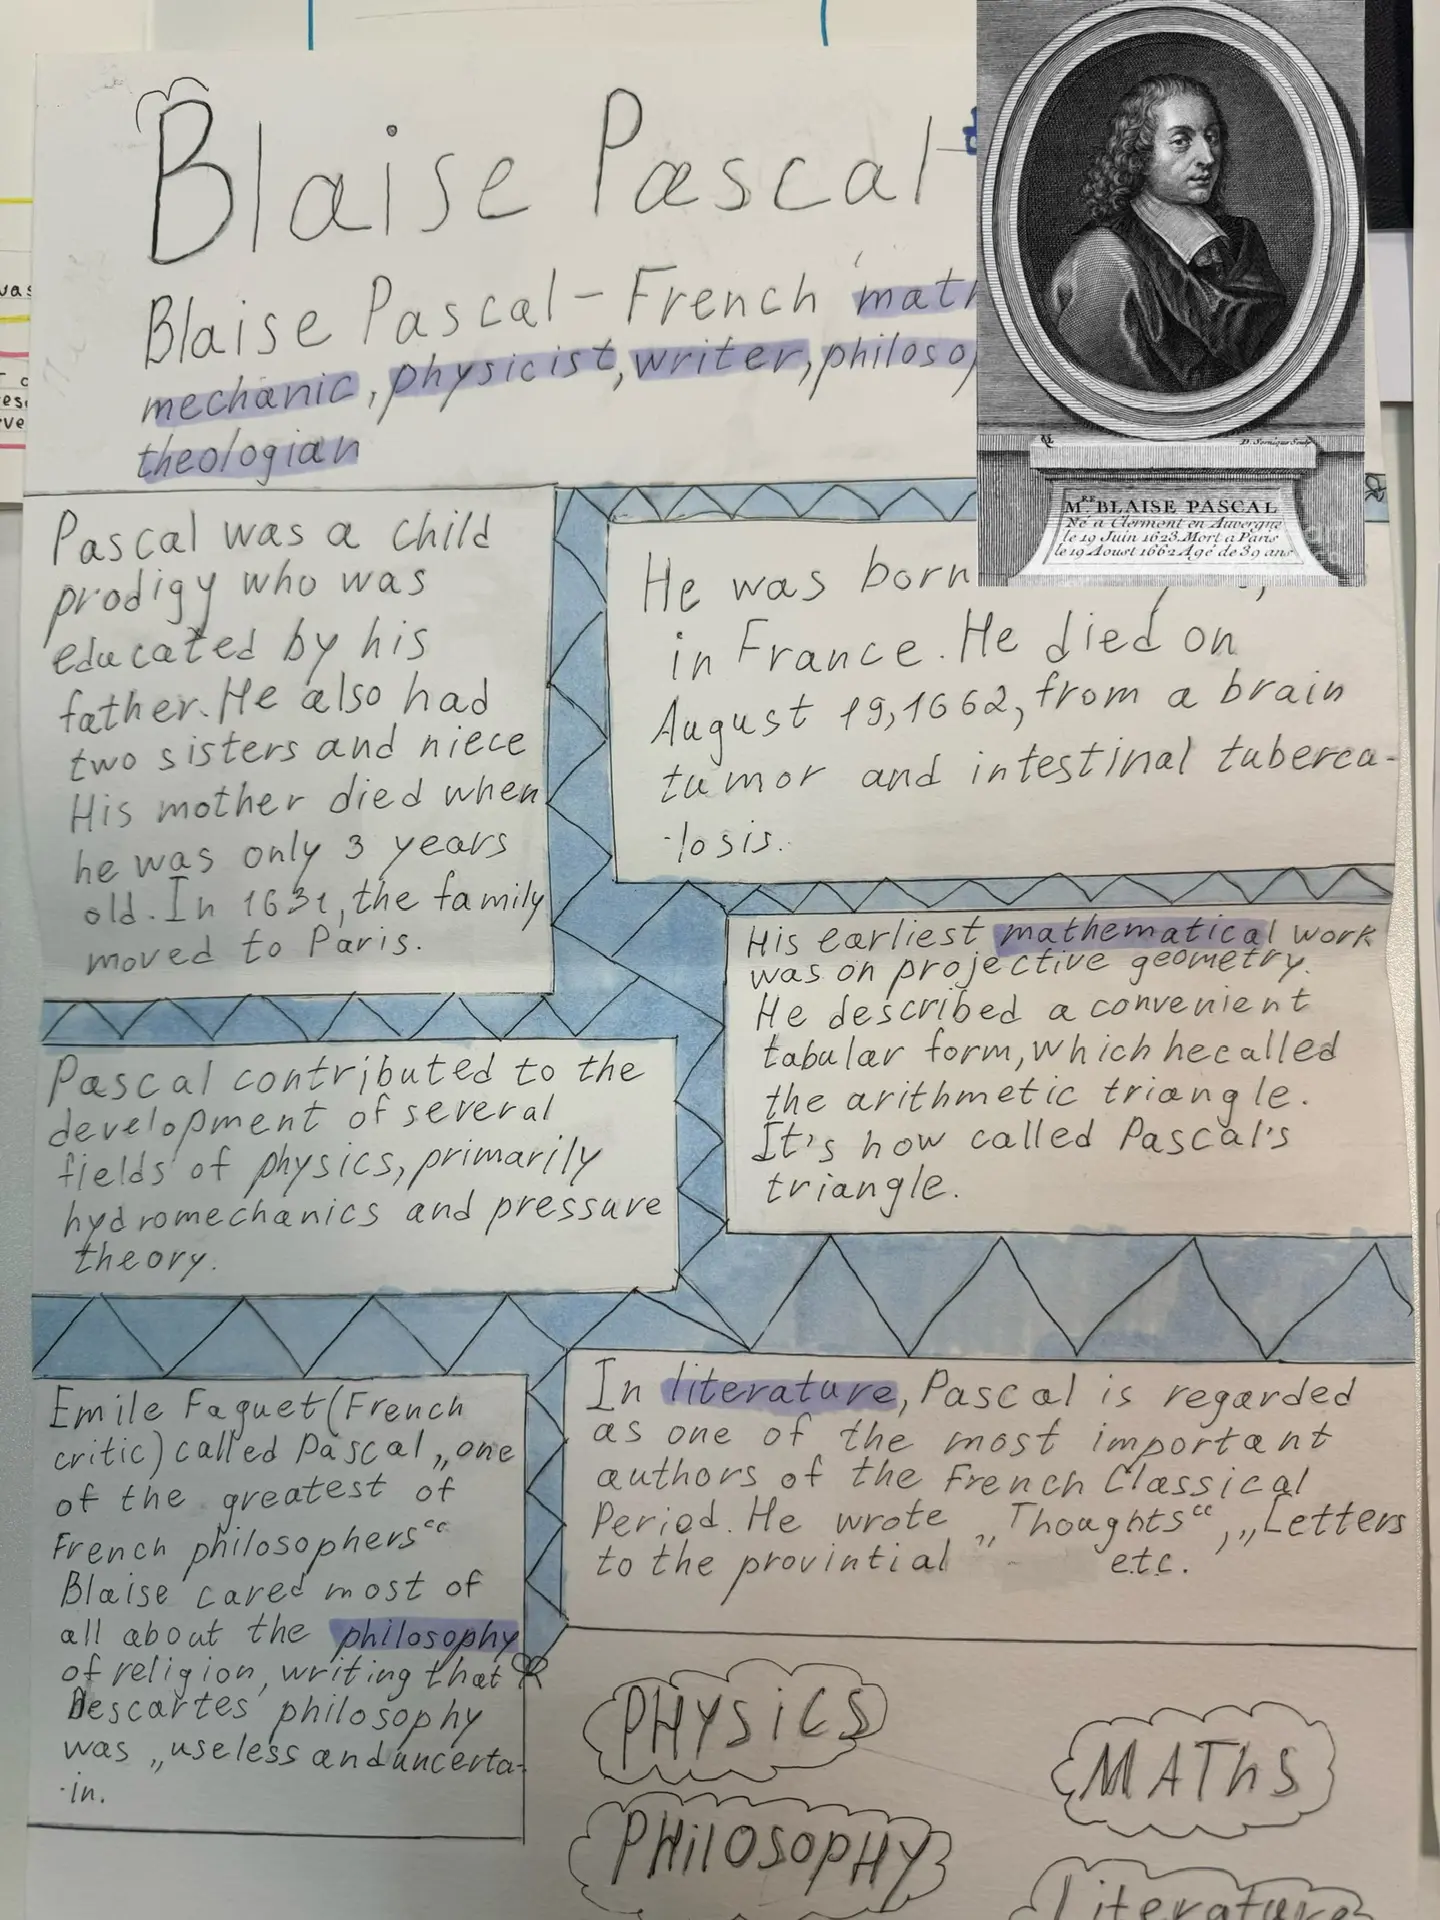 Blaise Pascal
Blaise Pascal - French
mechanic, physicist, writer,
theologian
MRE BLAISE PASCAL
Né a Clermont en Auvergne
le 19 Juin 1623. Mort a Paris
le 19 Aoust 1662 Agé de 39 ans
Pascal was a child
prodigy who was
educated by his
father. He also had
two sisters and niece
His mother died when
he was only 3 years
old. In 1631, the family
moved to Paris.
He was born
in France. He died on
August 19, 1662, from a brain
tumor and intestinal tuberca-
-losis.
His earliest mathematical work
was on projective geometry.
He described a convenient
tabular form, which he called
the arithmetic triangle.
It's now called Pascal's
triangle.
Pascal contributed to the
development of several
fields of physics, primarily
hydromechanics and pressure
theory.
Emile Faguet (French
critic) called Pascal „one
of the greatest of
French philosophers“
Blaise cared most of
all about the philosophy
of religion, writing that
Descartes' philosophy
was „useless and uncerta-
-in.
In literature, Pascal is regarded
as one of the most important
authors of the French Classical
Period. He wrote „Thoughts“, „Letters
to the provintial “ etc.
PHYSiCS
MAThS
PHilOSOpHY
Literature